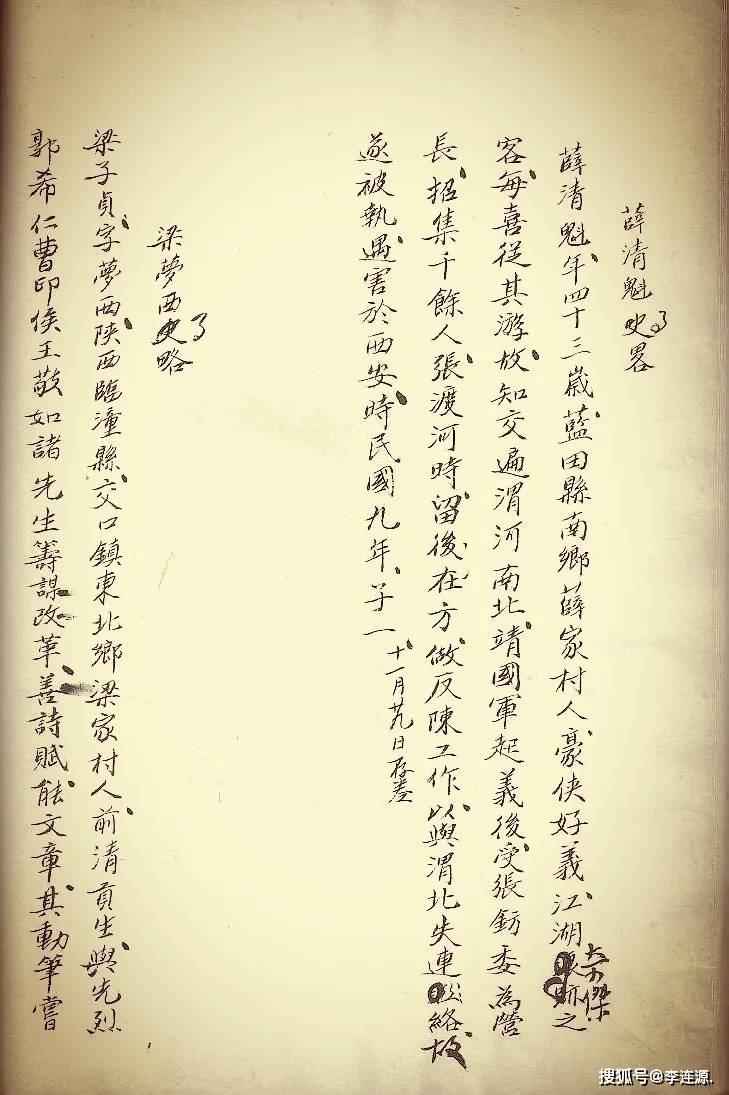 薛清魁史畧
了
薛清魁年、四十三歲、藍田縣南鄉薛家村人、豪俠好義、江湖之
傑
客、每喜從其游、放知交遍渭河南北、靖國軍起義後、受張鈁委為營
長、招集千餘人、張渡河時、留後在方、做反陳工作、以與渭北失連絡、故
遂被執、遇害於西安、時民國九年、子一、
十一月廿九日
梁夢西史略
了
梁子貞、字夢西、陝西臨潼縣、交口鎮東北鄉梁家村人、前清貢生、與先烈
郭希仁曹印侯王敬如諸先生籌謀改革、善詩賦、能文章、其動筆嘗
搜狐号@李连源.